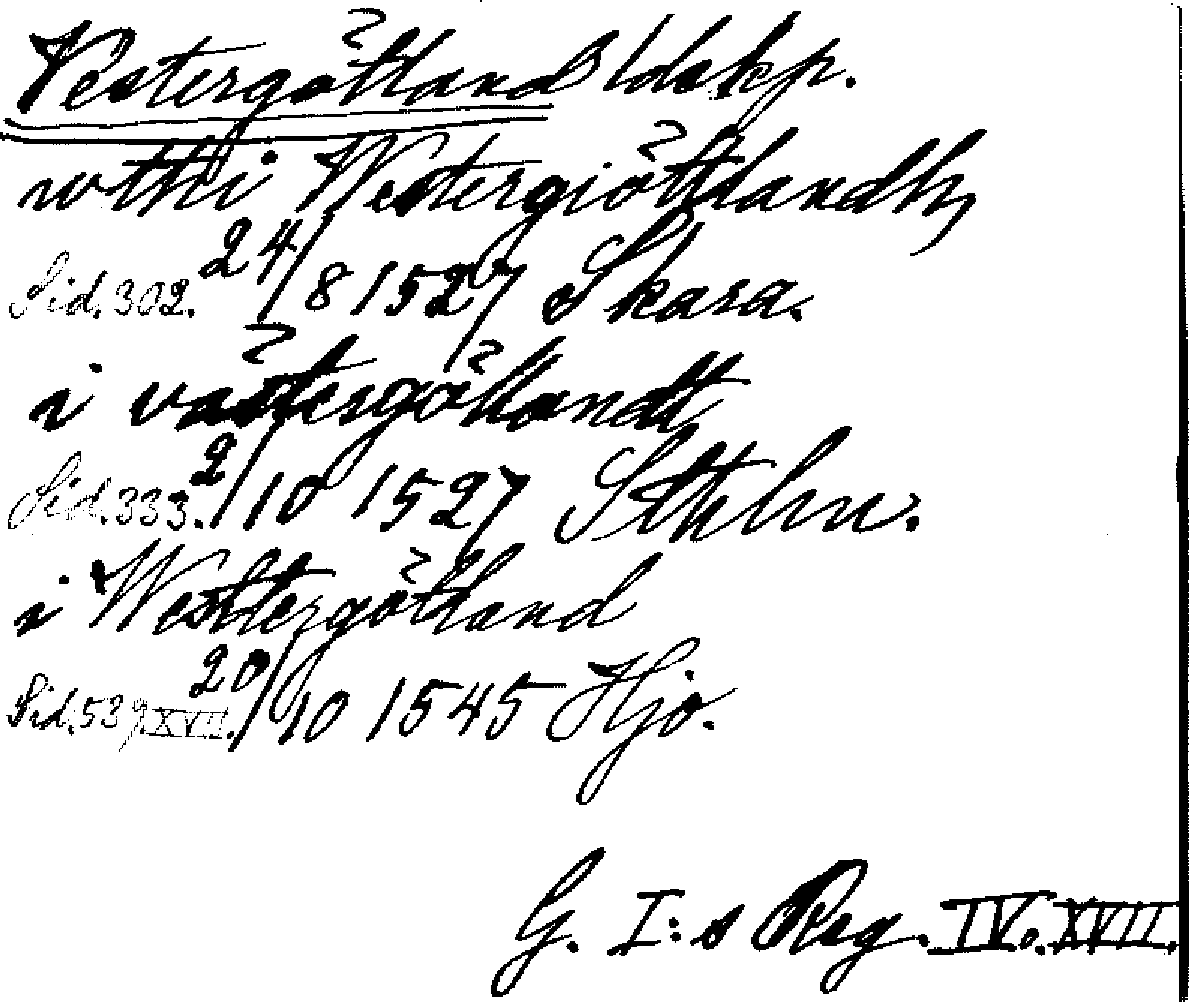 Vestergötland ldskp.
wthi Westergiöttlandh,
Sid. 302. 24/8 1527 Skara.
i västergötlandt
Sid. 333. 2/10 1527 Sthlm.
i Westtergötland
Sid. 539 XVII. 20/10 1545 Hjo.
G. I:s Reg. IV. XVII.